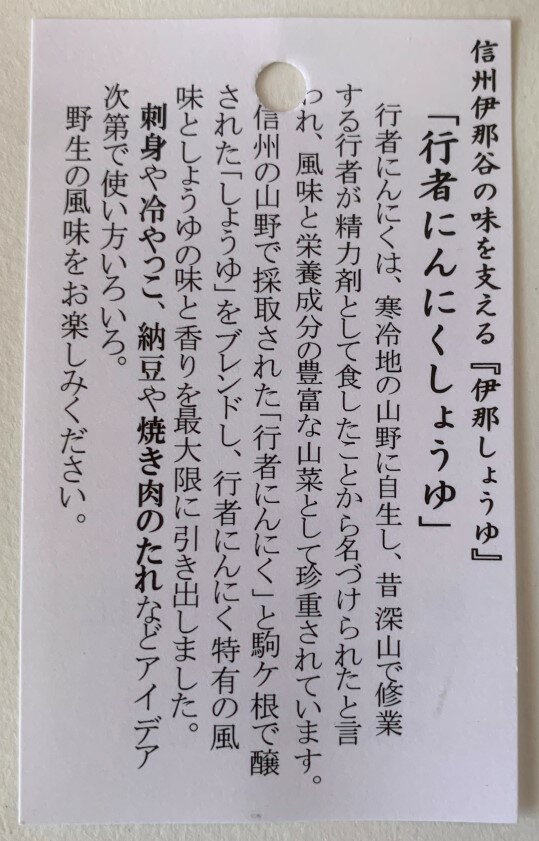 信州伊那谷の味を支える『伊那しょうゆ』
「行者にんにくしょうゆ」
行者にんにくは、寒冷地の山野に自生し、昔 深山で修業
する行者が精力剤として食したことから名づけられたと言
われ、風味と栄養成分の豊富な山菜として珍重されています。
信州の山野で採取された「行者にんにく」と駒ケ根で醸
された「しょうゆ」をブレンドし、行者にんにく特有の風
味としょうゆの味と香りを最大限に引き出しました。
刺身や冷やっこ、納豆や焼き肉のたれなどアイデア
次第で使い方いろいろ。
野生の風味をお楽しみください。